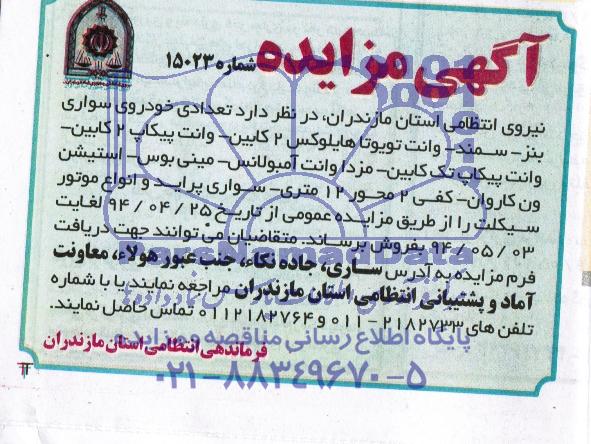 آگهی مزایده شماره ۱۵۰۲۳
نیروی انتظامی استان مازندران، در نظر دارد تعدادی خودروی سواری
بنز- سمند- وانت تویوتا هایلوکس ۲ کابین- وانت پیکاپ ۲ کابین-
وانت پیکاپ تک کابین- مزدا وانت آمبولانس- مینی بوس- استیشن
ون کاروان- کفی ۲ محور ۱۲ متری- سواری پراید و انواع موتور
سیکلت را از طریق مزایده عمومی از تاریخ ۲۵ / ۰۴ / ۹۴ لغایت
۰۳ / ۰۵ / ۹۴ بفروش برساند. متقاضیان می توانند جهت دریافت
فرم مزایده به آدرس ساری، جاده نکاء، جنب عبور هولاء، معاونت
آماد و پشتیبانی انتظامی استان مازندران مراجعه نمایند یا با شماره
تلفن های ۲۱۸۲۷۳۳-۰۱۱ و ۰۱۱۲۱۸۲۷۶۴ تماس حاصل نمایند.
فرماندهی انتظامی استان مازندران
پایگاه اطلاع رسانی مناقصه و مزایده
۰۲۱-۸۸۳۴۹۶۷۰-۵